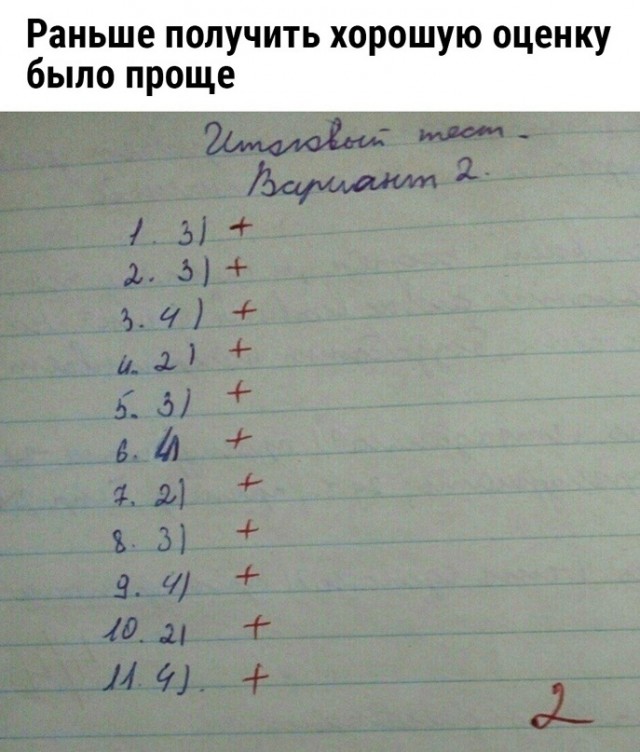 Раньше получить хорошую оценку
было проще
Итоговый тест.
Вариант 2.
1. 3) +
2. 3) +
3. 4) +
4. 2) +
5. 3) +
6. +
7. 2) +
8. 3) +
9. 4) +
10. 2) +
11. 4). +
2